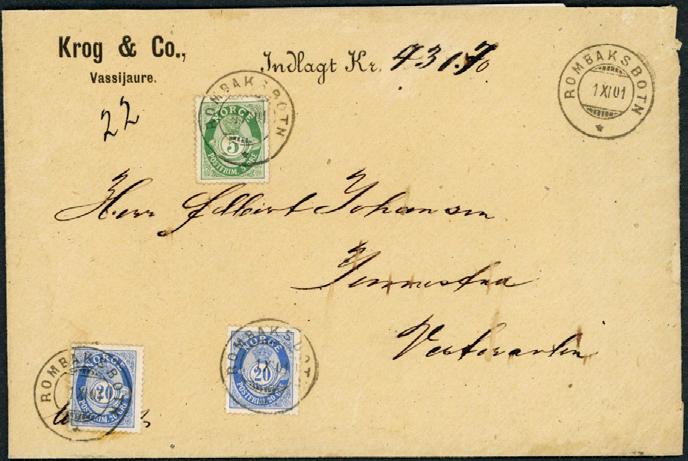 Krog & Co.,
Vassijaure.
Indlagt Kr. 4317
22
ROMBAKSBOTN
1 XI 01
ROMBAKSBOTN
NORGE
5
POSTFRIM. 5 ØRE
Herr Johansen
ROMBAKSBOTN
NORGE
20
POSTFRIM. 20 ØRE
ROMBAKSBOTN
NORGE
20
POSTFRIM. 20 ØRE